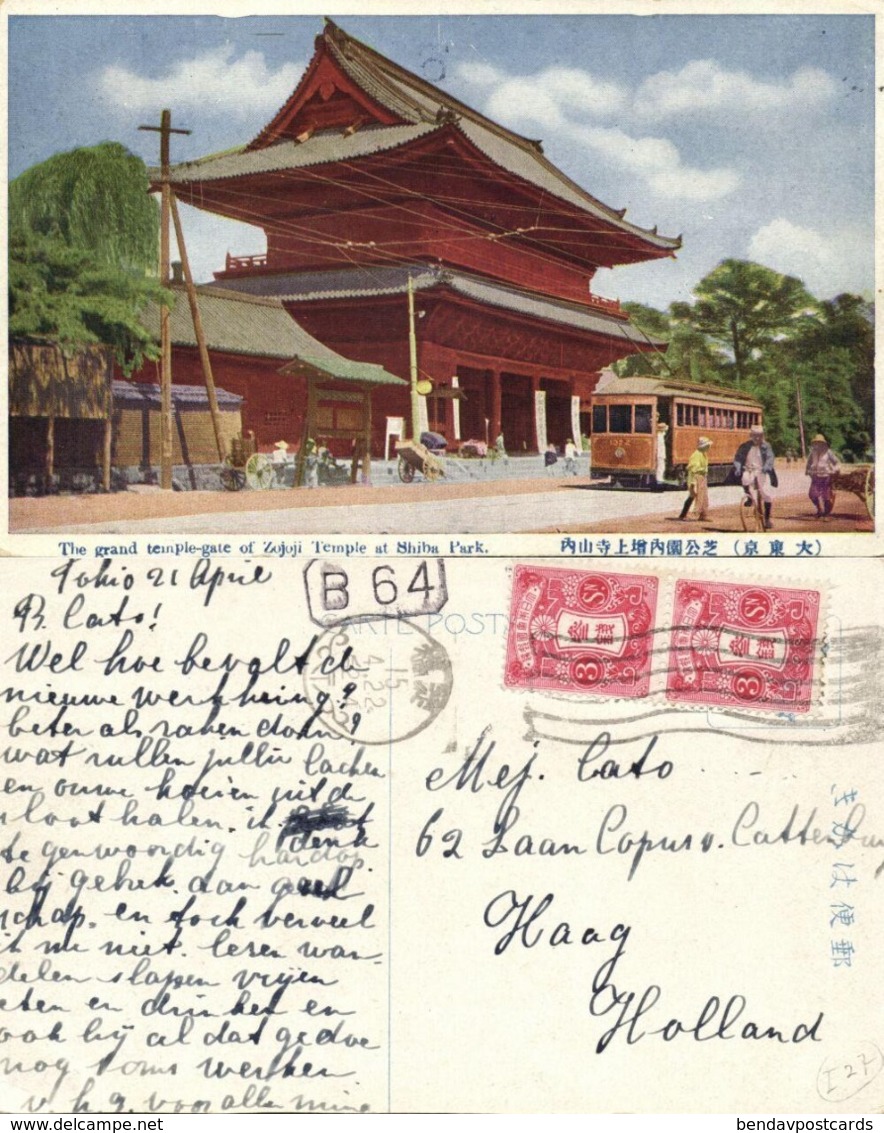 The grand temple-gate of Zojoji Temple at Shiba Park.
内山寺上增內園公芝（京東大）
Tokio 21 April
B. Cato!
Wel hoe bevalt de
nieuwe werkkring?
beter als
wat zullen jullie lachen
en ouwe koeien uit de
sloot halen. ik denk
tegenwoordig hardop
bij gebrek aan gezel
schap. en toch verveel
ik me niet. lezen wan-
delen slapen vrijen
eten en drinken en
ook bij al dat gedoe
nog soms werken
v. h. g. voor allen
B 64
CARTE POST
15
4.22
Mej. Cato
62 Laan Copus v. Cattenburg
Haag
Holland
きがは便郵
I27
www.delcampe.net
bendavpostcards